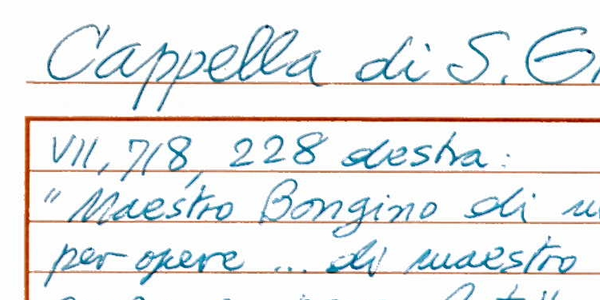 Cappella di S.
VII, 718, 228 destra:
"Maestro Bongino di
per opere ... di maestro